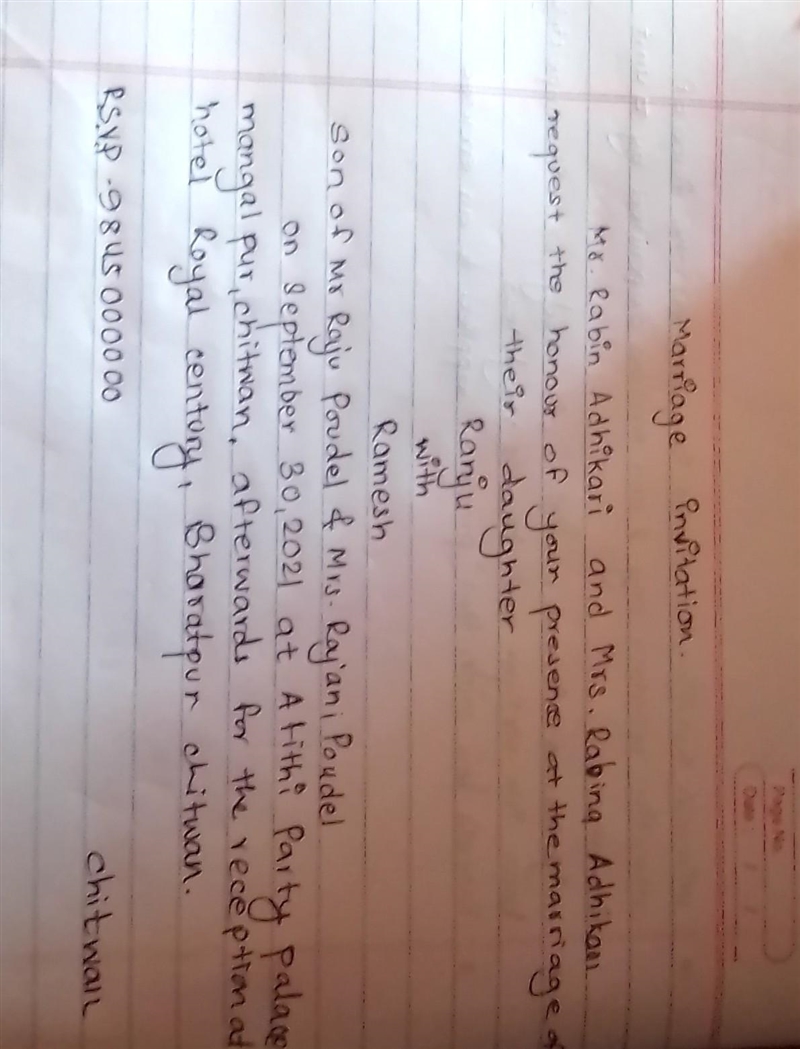 Page No.
Date: / /
Marriage invitation.
Mr. Rabin Adhikari and Mrs. Rabina Adhikari
request the honour of your presence at the marriage of
their daughter
Ranju
with
Ramesh
Son of Mr Raju Poudel & Mrs. Rajani Poudel
on September 30, 2021 at Atithi Party palace
mangalpur, chitwan, afterwards for the reception at
hotel Royal century, Bharatpur chitwan.
R.S.V.P - 9845000000 chitwan